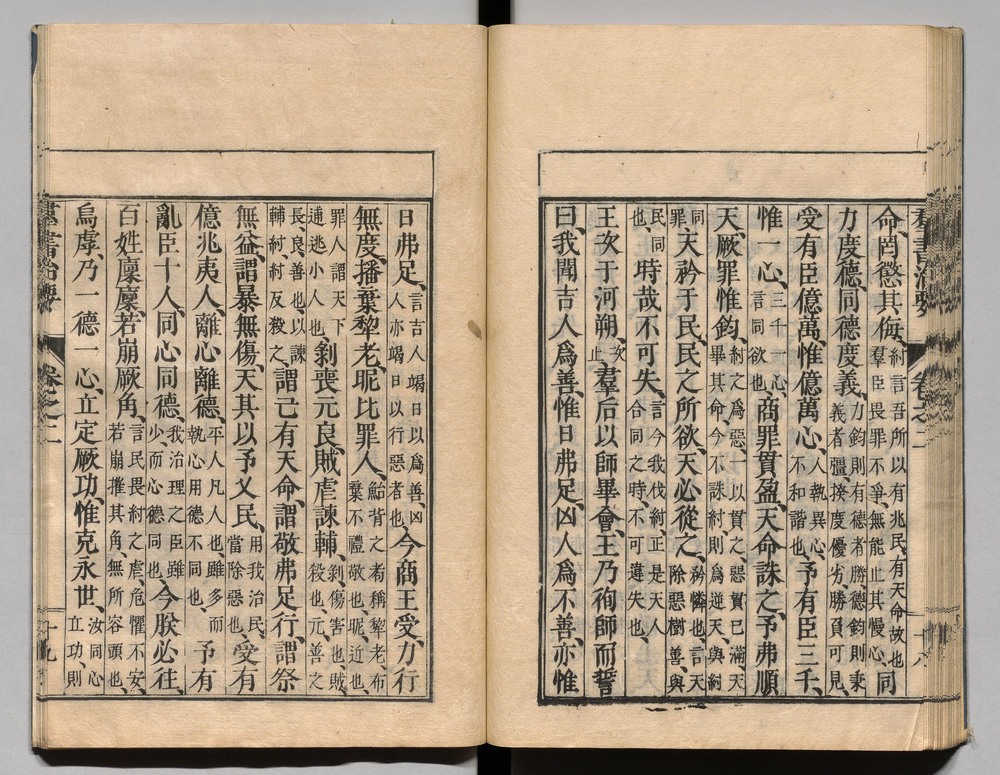 羣書治要 卷之二 十八
命、罔懲其侮、紂言吾所以有兆民、有天命故也羣臣畏罪不爭、無能止其慢心、同
力度德、同德度義、力鈞則有德者勝、德鈞則秉義者彊、揆度優劣、勝負可見、
受有臣億萬、惟億萬心、人執異心、不和諧也、予有臣三千、
惟一心、三千一心、言同欲也、商罪貫盈、天命誅之、予弗順
天、厥罪惟鈞、紂之爲惡、以貫之、惡貫已滿、天畢其命、今不誅紂則爲逆天、與紂
同罪、天矜于民、民之所欲、天必從之、矜憐也、言天除惡樹善、與
民同也、時哉不可失、言今我伐紂、正是天人合同之時、不可違失也、
王次于河朔、次止羣后以師畢會、王乃徇師而誓
曰、我聞吉人爲善、惟日弗足、凶人爲不善、亦惟
日弗足、言吉人竭日以爲善、凶人亦竭日以行惡者也、今商王受、力行
無度、播棄犂老、昵比罪人、鮐背之耇稱犂老、布棄不禮敬也、昵、近也、
罪人謂天下逋逃小人也、剝喪元良、賊虐諫輔、剝、傷害也、賊、殺也、元、善之
長、良、善也、以諫輔紂、紂反殺之、謂己有天命、謂敬弗足行、謂祭
無益、謂暴無傷、天其以予乂民、用我治民、當除惡也、受有
億兆夷人、離心離德、平人凡人也、雖多而執心用德不同也、予有
亂臣十人、同心同德、我治理之臣雖少、而心德同也、今朕必往、
百姓廩廩、若崩厥角、言民畏紂之虐、危懼不安、若崩摧其角、無所容頭也、
烏虖、乃一德一心、立定厥功、惟克永世、汝同心立功、則
羣書治要 卷之二 十九